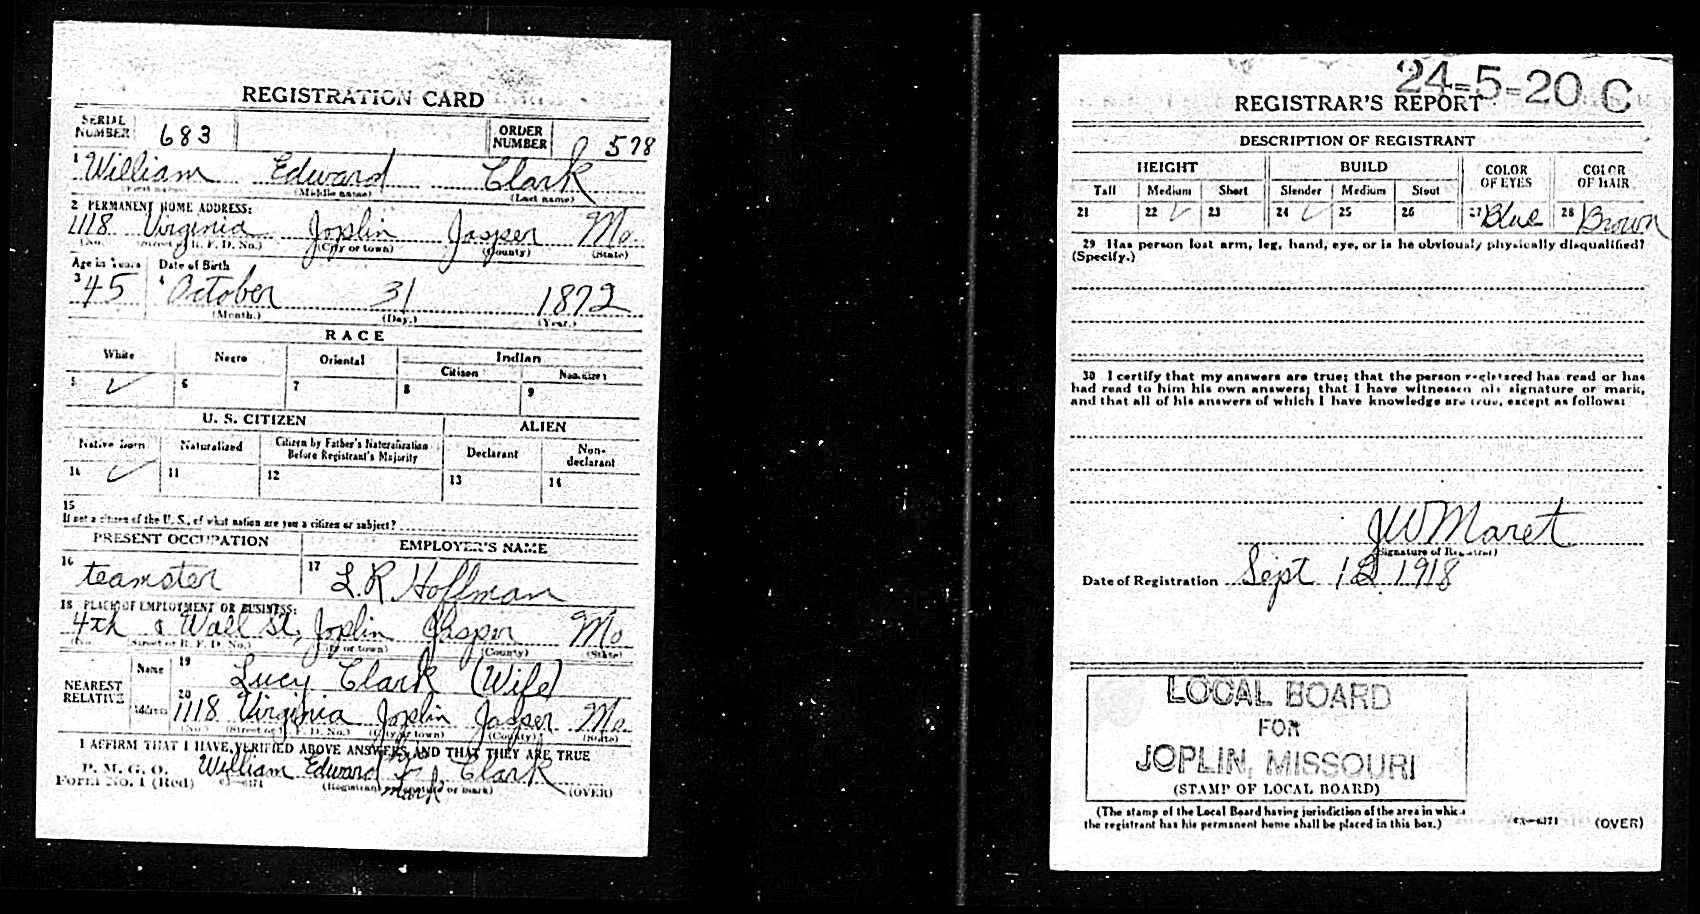 REGISTRATION CARD
SERIAL NUMBER 683 ORDER NUMBER 578
1 William Edward Clark
(First name) (Middle name) (Last name)
2 PERMANENT HOME ADDRESS:
1118 Virginia Joplin Jasper Mo.
(No.) (Street or R. F. D. No.) (City or town) (County) (State)
Age in Years Date of Birth
3 45 4 October 31 1872
(Month.) (Day.) (Year.)
RACE
White Negro Oriental Indian
Citizen Noncitizen
5 ✓ 6 7 8 9
U. S. CITIZEN ALIEN
Native Born Naturalized Citizen by Father's Naturalization Before Registrant's Majority Declarant Non-declarant
10 ✓ 11 12 13 14
15
If not a citizen of the U. S., of what nation are you a citizen or subject?
PRESENT OCCUPATION EMPLOYER'S NAME
16 teamster 17 L.R. Hoffman
18 PLACE OF EMPLOYMENT OR BUSINESS:
4th & Wall St, Joplin Jasper Mo
(No.) (Street or R. F. D. No.) (City or town) (County) (State)
NEAREST RELATIVE Name 19 Lucy Clark (Wife)
Address 20 1118 Virginia Joplin Jasper Mo.
(No.) (Street or R. F. D. No.) (City or town) (County) (State)
I AFFIRM THAT I HAVE VERIFIED ABOVE ANSWERS AND THAT THEY ARE TRUE
P. M. G. O.
Form No. 1 (Red)
his
William Edward X Clark
mark
(Registrant's signature or mark) (OVER)
24-5-20 C
REGISTRAR'S REPORT
DESCRIPTION OF REGISTRANT
HEIGHT BUILD COLOR OF EYES COLOR OF HAIR
Tall Medium Short Slender Medium Stout
21 22 ✓ 23 24 ✓ 25 26 27 Blue 28 Brown
29 Has person lost arm, leg, hand, eye, or is he obviously physically disqualified?
(Specify.)
30 I certify that my answers are true; that the person registered has read or has
had read to him his own answers; that I have witnessed his signature or mark,
and that all of his answers of which I have knowledge are true, except as follows:
J W Maret
(Signature of Registrar)
Date of Registration Sept 12 1918
LOCAL BOARD
FOR
JOPLIN, MISSOURI
(STAMP OF LOCAL BOARD)
(The stamp of the Local Board having jurisdiction of the area in which
the registrant has his permanent home shall be placed in this box.)
(OVER)